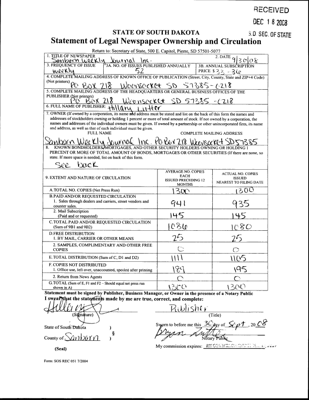 RECEIVED
DEC 18 2008
S.D. SEC. OF STATE
STATE OF SOUTH DAKOTA
Statement of Legal Newspaper Ownership and Circulation
Return to: Secretary of State, 500 E. Capitol, Pierre, SD 57501-5077
1. TITLE OF NEWSPAPER
2. DATE
Sanborn Weekly Journal Inc.
9/30/08
3. FREQUENCY OF ISSUE
3A. NO. OF ISSUES PUBLISHED ANNUALLY
3B. ANNUAL SUBSCRIPTION PRICE
weekly
52
4. COMPLETE MAILING ADDRESS OF KNOWN OFFICE OF PUBLICATION (Street, City, County, State and ZIP+4 Code) (Not printers)
PO Box 218 Woonsocket SD 57385-0218
5. COMPLETE MAILING ADDRESS OF THE HEADQUARTERS OF GENERAL BUSINESS OFFICES OF THE PUBLISHER (Not printers)
PO Box 218 Woonsocket SD 57385-0218
6. FULL NAME OF PUBLISHER: Hillary Lutter
7. OWNER (If owned by a corporation, its name and address must be stated and also on the back of this form the names and addresses of stockholders owning or holding 1 percent or more of total amount of stock. If not owned by a corporation, the names and addresses of the individual owners must be given. If owned by a partnership or other unincorporated firm, its name and address, as well as that of each individual must be given.
FULL NAME
COMPLETE MAILING ADDRESS
Sanborn Weekly Journal, Inc. PO Box 218 Woonsocket SD 57385
8. KNOWN BONDHOLDERS, MORTGAGES, AND OTHER SECURITY HOLDERS OWNING OR HOLDING 1 PERCENT OR MORE OF TOTAL AMOUNT OF BONDS, MORTGAGES OR OTHER SECURITIES (If there are none, so state. If more space is needed, list on back of this form.
See back
9. EXTENT AND NATURE OF CIRCULATION
AVERAGE NO. COPIES EACH ISSUED PRECEDING 12 MONTHS
ACTUAL NO. COPIES ISSUED NEAREST TO FILING DATE
A. TOTAL NO. COPIES (Net Press Run)
1300
1300
B. PAID AND/OR REQUESTED CIRCULATION
1. Sales through dealers and carriers, street vendors and counter sales
941
935
2. Mail Subscription (Paid and or requested)
145
145
C. TOTAL PAID AND/OR REQUESTED CIRCULATION (Sum of 9B1 and 9B2)
1086
1080
D. FREE DISTRIBUTION
1. BY MAIL, CARRIER OR OTHER MEANS
25
25
2. SAMPLES, COMPLIMENTARY AND OTHER FREE COPIES
0
0
E. TOTAL DISTRIBUTION (Sum of C, D1 and D2)
1111
1105
F. COPIES NOT DISTRIBUTED
1. Office use, left over, unaccounted, spoiled after printing
189
195
2. Return from News Agents
0
0
G. TOTAL (Sum of E, F1 and F2 - Should equal net press run shown in A)
1300
1300
Statement must be signed by Publisher, Business Manager, or Owner in the presence of a Notary Public
I swear that the statements made by me are true, correct, and complete:
Publisher
(Signature)
(Title)
State of South Dakota
Sworn to before me this 30 day of Sept. 2008
County of Sanborn
Notary Public
(Seal)
My commission expires:
Form: SOS REC 051 7/2004